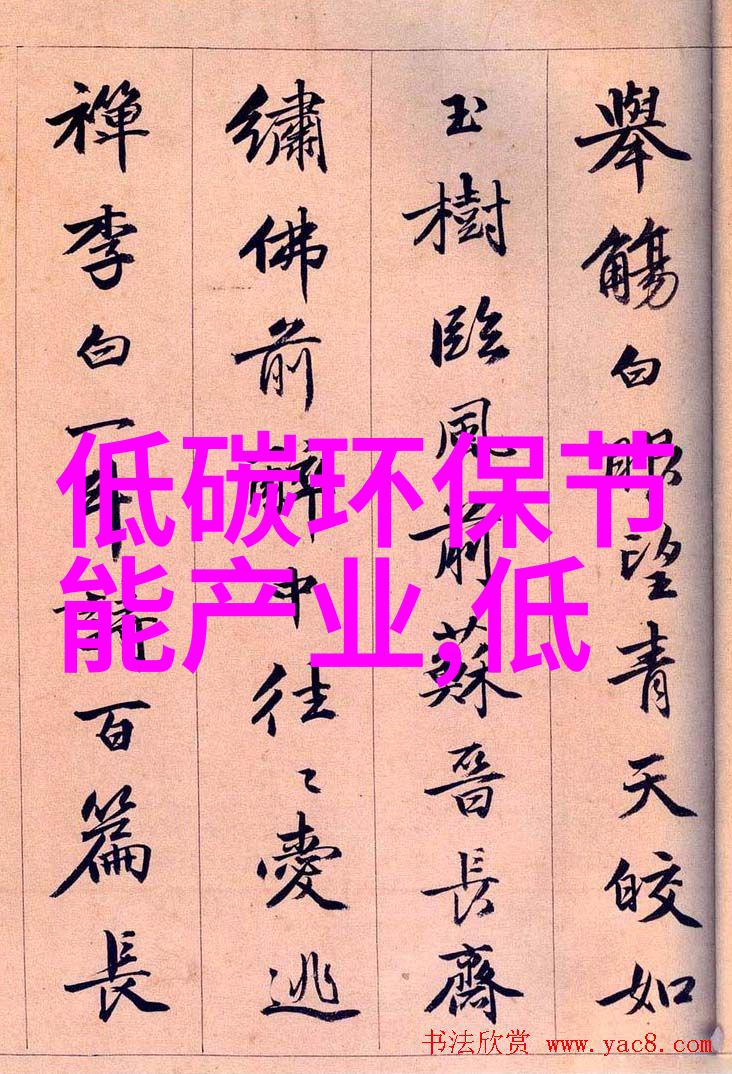 舉觴白眼望青天皎如
玉樹臨風前蘇晉長齋
繡佛前醉中往〻愛逃
禪李白一斗詩百篇長
低碳环保节
能产业,低
书法欣赏 www.yac8.com